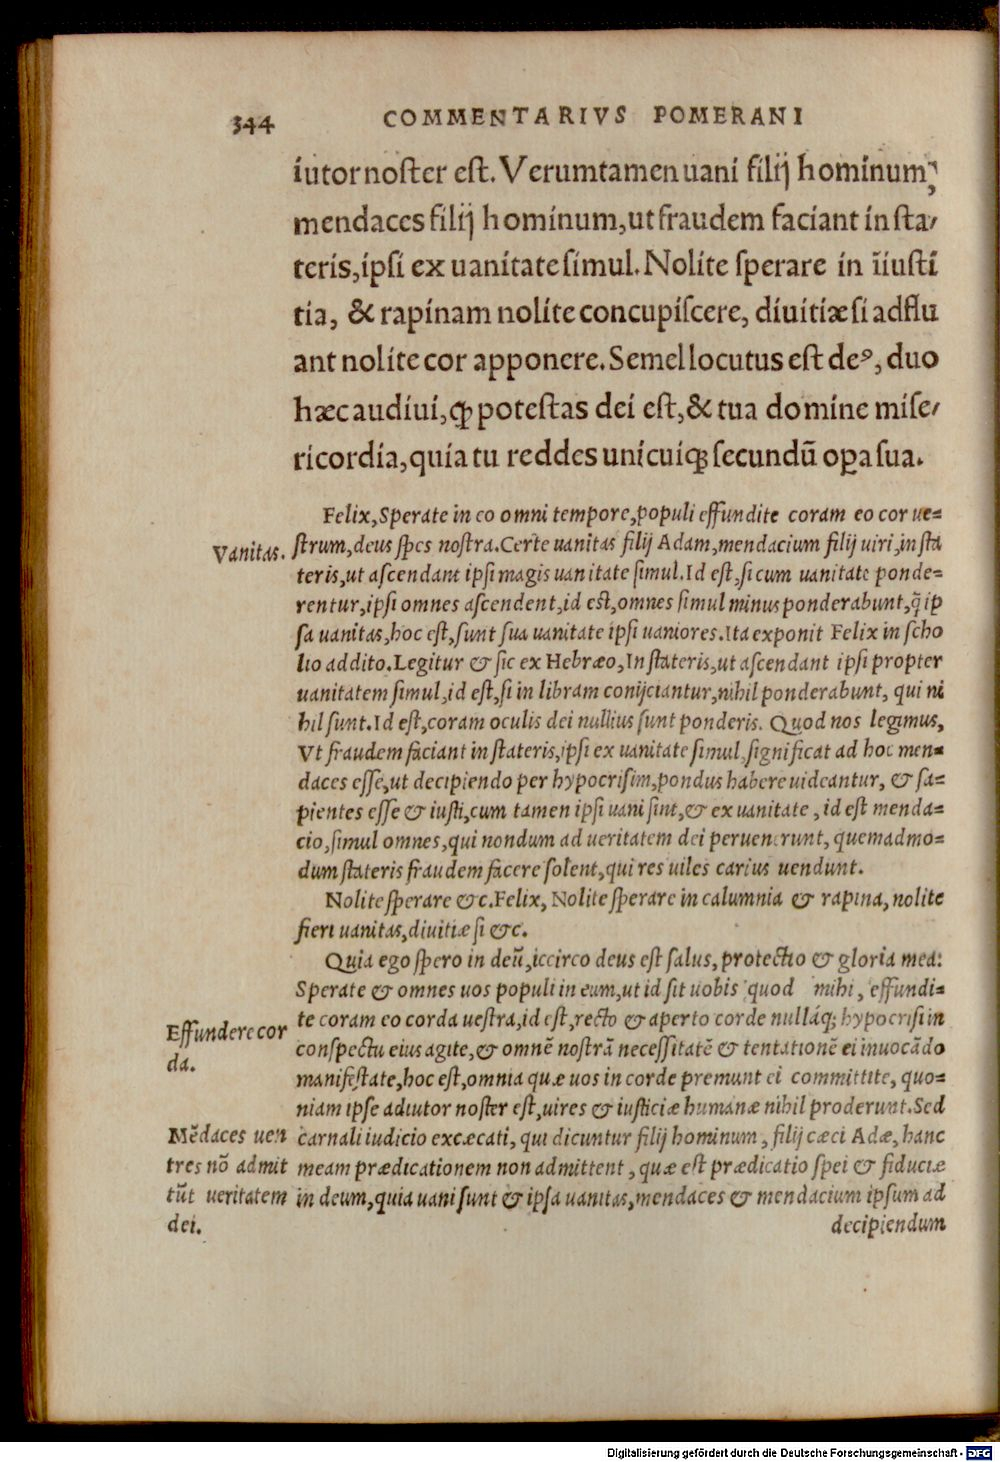 344 COMMENTARIVS POMERANI
iutor noſter eſt. Verumtamen uani filij hominum,
mendaces filij hominum, ut fraudem faciant in ſta/
teris, ipſi ex uanitate ſimul. Nolite ſperare in īiuſti
tia, & rapinam nolite concupiſcere, diuitiæ ſi adflu
ant nolite cor apponere. Semel locutus eſt deꝰ, duo
hæc audiui, ꝙ poteſtas dei eſt, & tua domine miſe/
ricordia, quia tu reddes unicuiqꝫ ſecundũ oꝑa ſua.
Felix, Sperate in eo omni tempore, populi effundite coram eo cor ue=
Vanitas.
ſtrum, deus ſpes noſtra. Certe uanitas filij Adam, mendacium filij uiri, in ſta
teris, ut aſcendant ipſi magis uanitate ſimul. Id eſt, ſi cum uanitate ponde=
rentur, ipſi omnes aſcendent, id eſt, omnes ſimul minus ponderabunt, q̃ ip
ſa uanitas, hoc eſt, ſunt ſua uanitate ipſi uaniores. Ita exponit Felix in ſcho
lio addito. Legitur & ſic ex Hebræo, In ſtateris, ut aſcendant ipſi propter
uanitatem ſimul, id eſt, ſi in libram conijciantur, nihil ponderabunt, qui ni
hil ſunt. Id eſt, coram oculis dei nullius ſunt ponderis. Quod nos legimus,
Vt fraudem faciant in ſtateris, ipſi ex uanitate ſimul, ſignificat ad hoc men=
daces eſſe, ut decipiendo per hypocriſim, pondus habere uideantur, & ſa=
pientes eſſe & iuſti, cum tamen ipſi uani ſint, & ex uanitate, id eſt menda=
cio, ſimul omnes, qui nondum ad ueritatem dei peruenerunt, quemadmo=
dum ſtateris fraudem facere ſolent, qui res uiles carius uendunt.
Nolite ſperare &c. Felix, Nolite ſperare in calumnia & rapina, nolite
fieri uanitas, diuitiæ ſi &c.
Quia ego ſpero in deũ, iccirco deus eſt ſalus, protectio & gloria mea:
Sperate & omnes uos populi in eum, ut id ſit uobis quod mihi, effundi=
te coram eo corda ueſtra, id eſt, recto & aperto corde nullaq́ꝫ hypocriſi in
Effundere cor
da.
conſpectu eius agite, & omnẽ noſtrã neceſſitatẽ & tentationẽ ei inuocãdo
manifeſtate, hoc eſt, omnia quæ uos in corde premunt ei committite, quo=
niam ipſe adiutor noſter eſt, uires & iuſticiæ humanæ nihil proderunt. Sed
Mẽdaces uen
tres nõ admit
tũt ueritatem
dei.
carnali iudicio excæcati, qui dicuntur filij hominum, filij cæci Adæ, hanc
meam prædicationem non admittent, quæ eſt prædicatio ſpei & fiduciæ
in deum, quia uani ſunt & ipſa uanitas, mendaces & mendacium ipſum ad
decipiendum
Digitalisierung gefördert durch die Deutsche Forschungsgemeinschaft - DFG